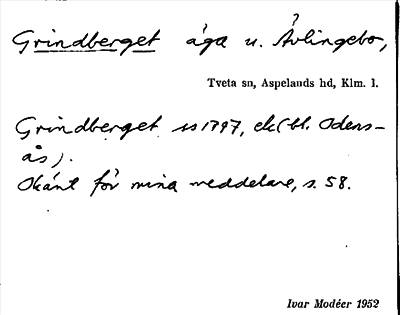 Grindberget äga u. Åvlingebo,
Tveta sn, Aspelands hd, Klm. l.
Grindberget ss 1797, ek (bl. Odens-
ås).
Okänt för mina meddelare, s. 58.
Ivar Modéer 1952